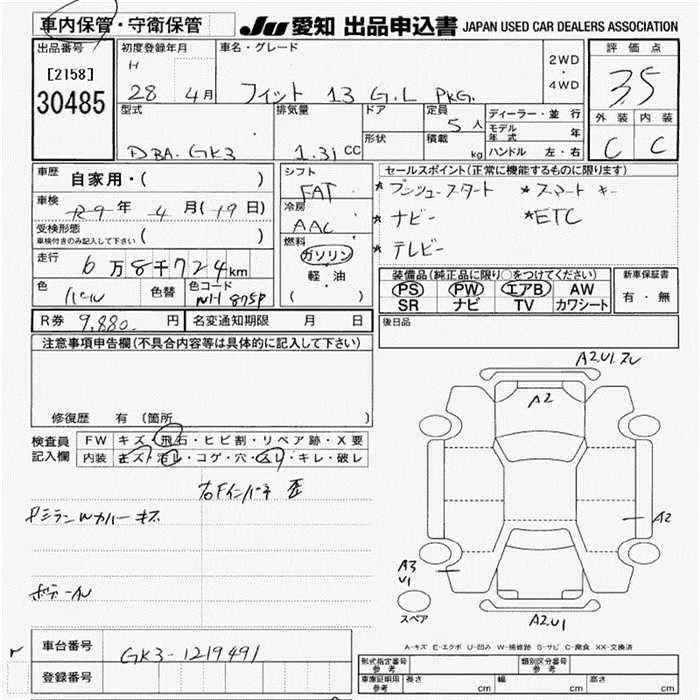 車内保管・守衛保管 JU 愛知 出品申込書 JAPAN USED CAR DEALERS ASSOCIATION
出品番号 初度登録年月 車名・グレード 2WD ・ 4WD 評価点
[2158] H
30485 28 4月 フィット 13 G.L PKG. 3.5
型式 排気量 ドア 定員 5人 ディーラー・並行 外装 内装
形状 積載 kg モデル年式 年
DBA-GK3 1.3i CC ハンドル 左・右 C C
車歴 自家用・( ) シフト セールスポイント(正常に機能するものに限ります)
FAT *プッシュスタート *スマートキー
車検 R9年 4月(19日) 冷房 *ナビー *ETC
受検形態 AAC
車検付きのみ記入して下さい ( ) 燃料 *テレビー
走行 6万8千724km ガソリン
軽・油 装備品(純正品に限り○をつけてください) 新車保証書
色 パール 色替 色コード NH875P ( ) PS PW エアB AW 有・無
SR ナビ TV カワシート
R券 9,880. 円 名変通知期限 月 日 後日品
注意事項申告欄(不具合内容等は具体的に記入して下さい)
A2.U1.
A2
修復歴 有 〔箇所 〕
検査員 FW キズ・飛石・ヒビ割・リペア跡・X要
記入欄 内装 キズ・汚レ・コゲ・穴・スレ・キレ・破レ
右Fインパネ
A2
カバーキズ
A3
U1
スペア A2U1
A-キズ E-エクボ U-凹み W-補修跡 S-サビ C-腐食 XX-交換済
車台番号 GK3-1219491
形式指定番号 参考 類別区分番号 参考
登録番号 車庫証明用 参考 長さ cm 幅 cm 高さ cm